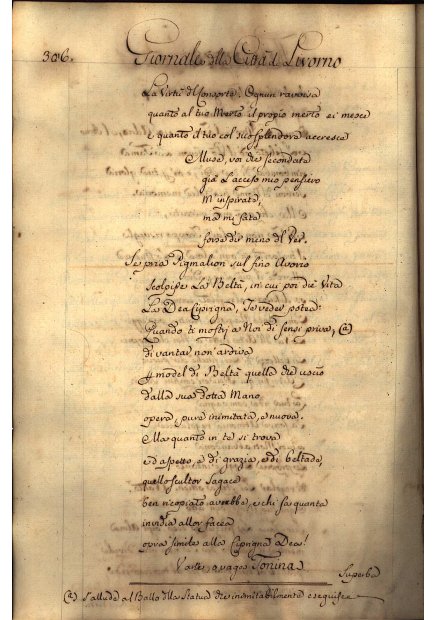 306. Giornale della Città di Livorno
La Virtù del Consorte. Ognun ravvisa
quanto al tuo Merto il propio merto ei mesce
e quanto il tuo col suo splendore accresca
Muse, voi che secondate
già l'acceso mio pensiero
M'inspirate,
ma mi fate
forse dir meno del Ver.
Se pria Pigmalion sul fino Avorio
Scolpisse La Beltà, in cui poi die Vita
La Dea Ciprigna, Te veder potea:
Quando ti mostri a Noi di sensi priva, (a)
di vantar non ardiva
model di Beltà quella che uscio
dalla sua dotta Mano
opera, pura inimitata, e nuova.
Ma quanto in te si trova
ed aspetto, e di grazia, e di beltade,
quello scultor sagace
ben ricopiato avrebbe, e chi sa quanta
invidia allor facea
opra simile alla Ciprigna Dea!
o vaga Tonina
Superba
(a) S'allude al Ballo della Statua che inimitabilmente eseguisce